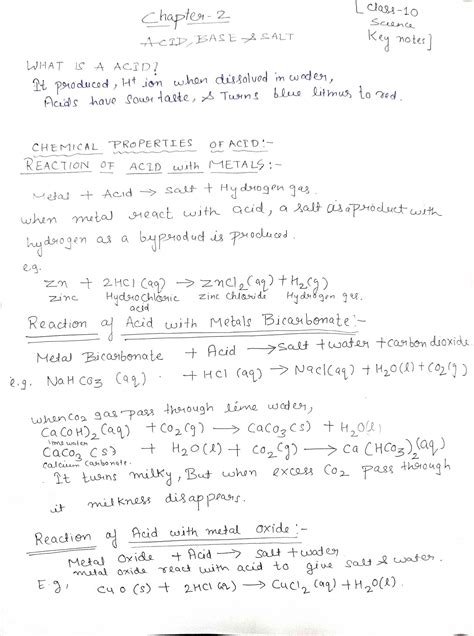 Chapter-2
[class-10
Science
Key notes]
ACID, BASE & SALT
WHAT IS A ACID?
It produced, H+ ion when dissolved in water,
Acids have sour taste, & Turns blue litmus to red.
CHEMICAL PROPERTIES OF ACID:-
REACTION OF ACID with METALS:-
Metal + Acid → Salt + Hydrogen gas.
when metal react with acid, a salt as a product with
hydrogen as a byproduct is produced.
e.g.
Zn + 2HCl (aq) → ZnCl2 (aq) + H2 (g)
zinc Hydrochloric zinc chloride Hydrogen gas.
acid
Reaction of Acid with Metals Bicarbonate:-
Metal Bicarbonate + Acid → Salt + water + carbon dioxide
e.g. NaHCO3 (aq) + HCl (aq) → NaCl(aq) + H2O(l) + CO2(g)
when CO2 gas pass through lime water,
Ca(OH)2 (aq) + CO2 (g) → CaCO3 (s) + H2O(l)
lime water
CaCO3 (s) + H2O(l) + CO2 (g) → Ca(HCO3)2 (aq)
calcium carbonate.
It turns milky, But when excess CO2 pass through
it milkness disappears.
Reaction of Acid with metal oxide:-
Metal Oxide + Acid → Salt + water
metal oxide react with acid to give salt & water.
E.g, CuO (s) + 2HCl → CuCl2 (aq) + H2O(l).